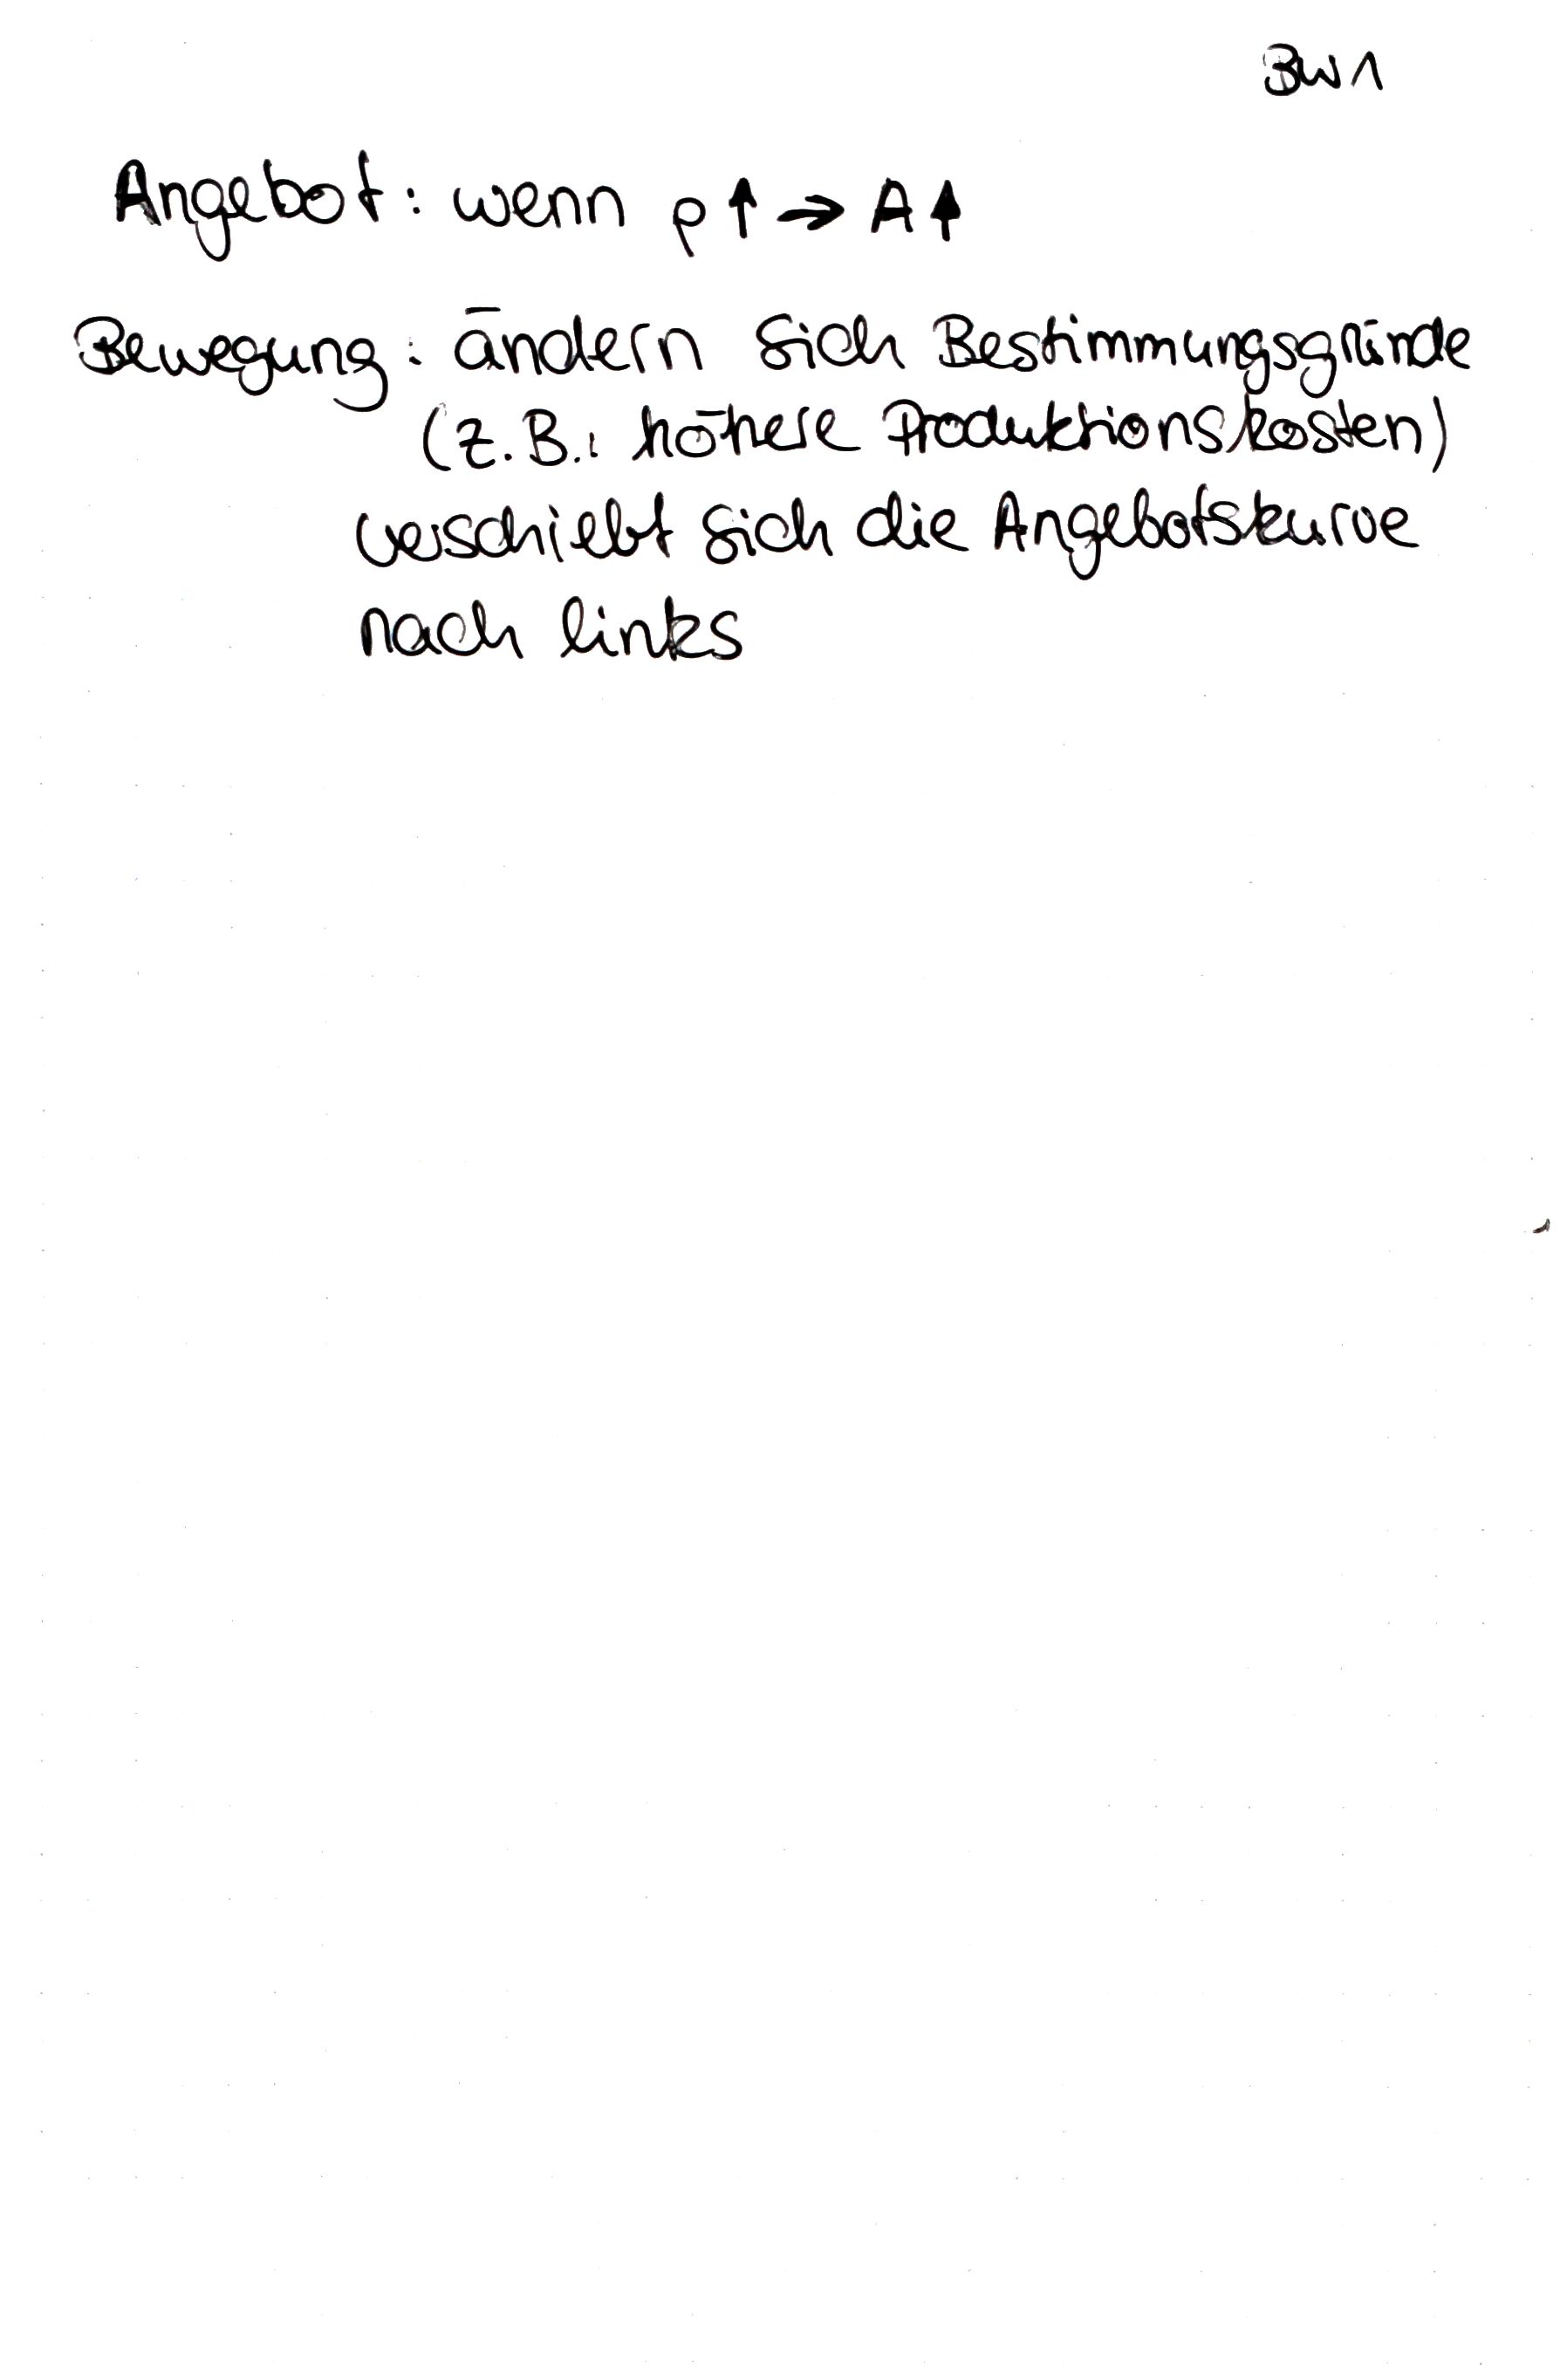 BW1
Angebot: wenn p↑ → A↑
Bewegung: ändern sich Bestimmungsgründe
(z.B.: höhere Produktionskosten)
verschiebt sich die Angebotskurve
nach links